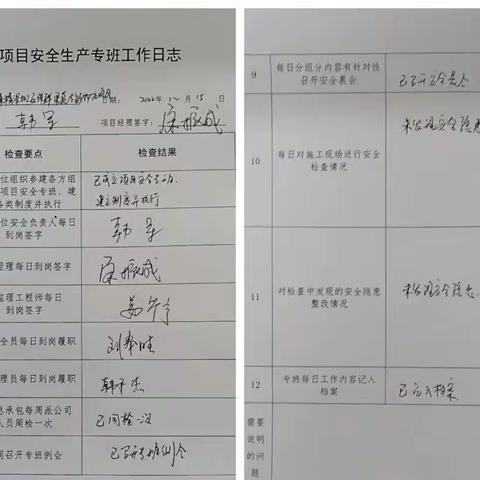 项目安全生产专班工作日志
日期: 2022年12月15日
项目经理签字:
检查要点 检查结果
位组织参建各方组
项目安全专班、建
各类制度并执行
已成立项目安全专班,
建立制度并执行
位安全负责人每日
到岗签字
经理每日到岗签字
监理工程师每日
到岗签字
全员每日到岗履职
理员每日到岗履职
总承包每周派公司
人员周检一次
已周检一次
周召开专班例会
已召开专班例会
9 每日分组分内容有针对性
召开安全晨会
已召开安全晨会
10 每日对施工现场进行安全
检查情况
未发现安全隐患
11 对检查中发现的安全隐患
整改情况
未发现安全隐患.
12 专班每日工作内容记入
档案
已记入档案
需要
说明
的问
题